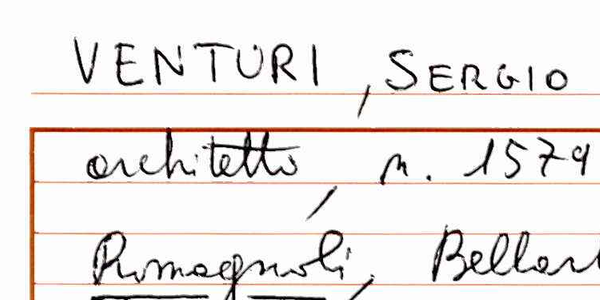 VENTURI, SERGIO
architetto, n. 1579
Romagnoli, Bellar